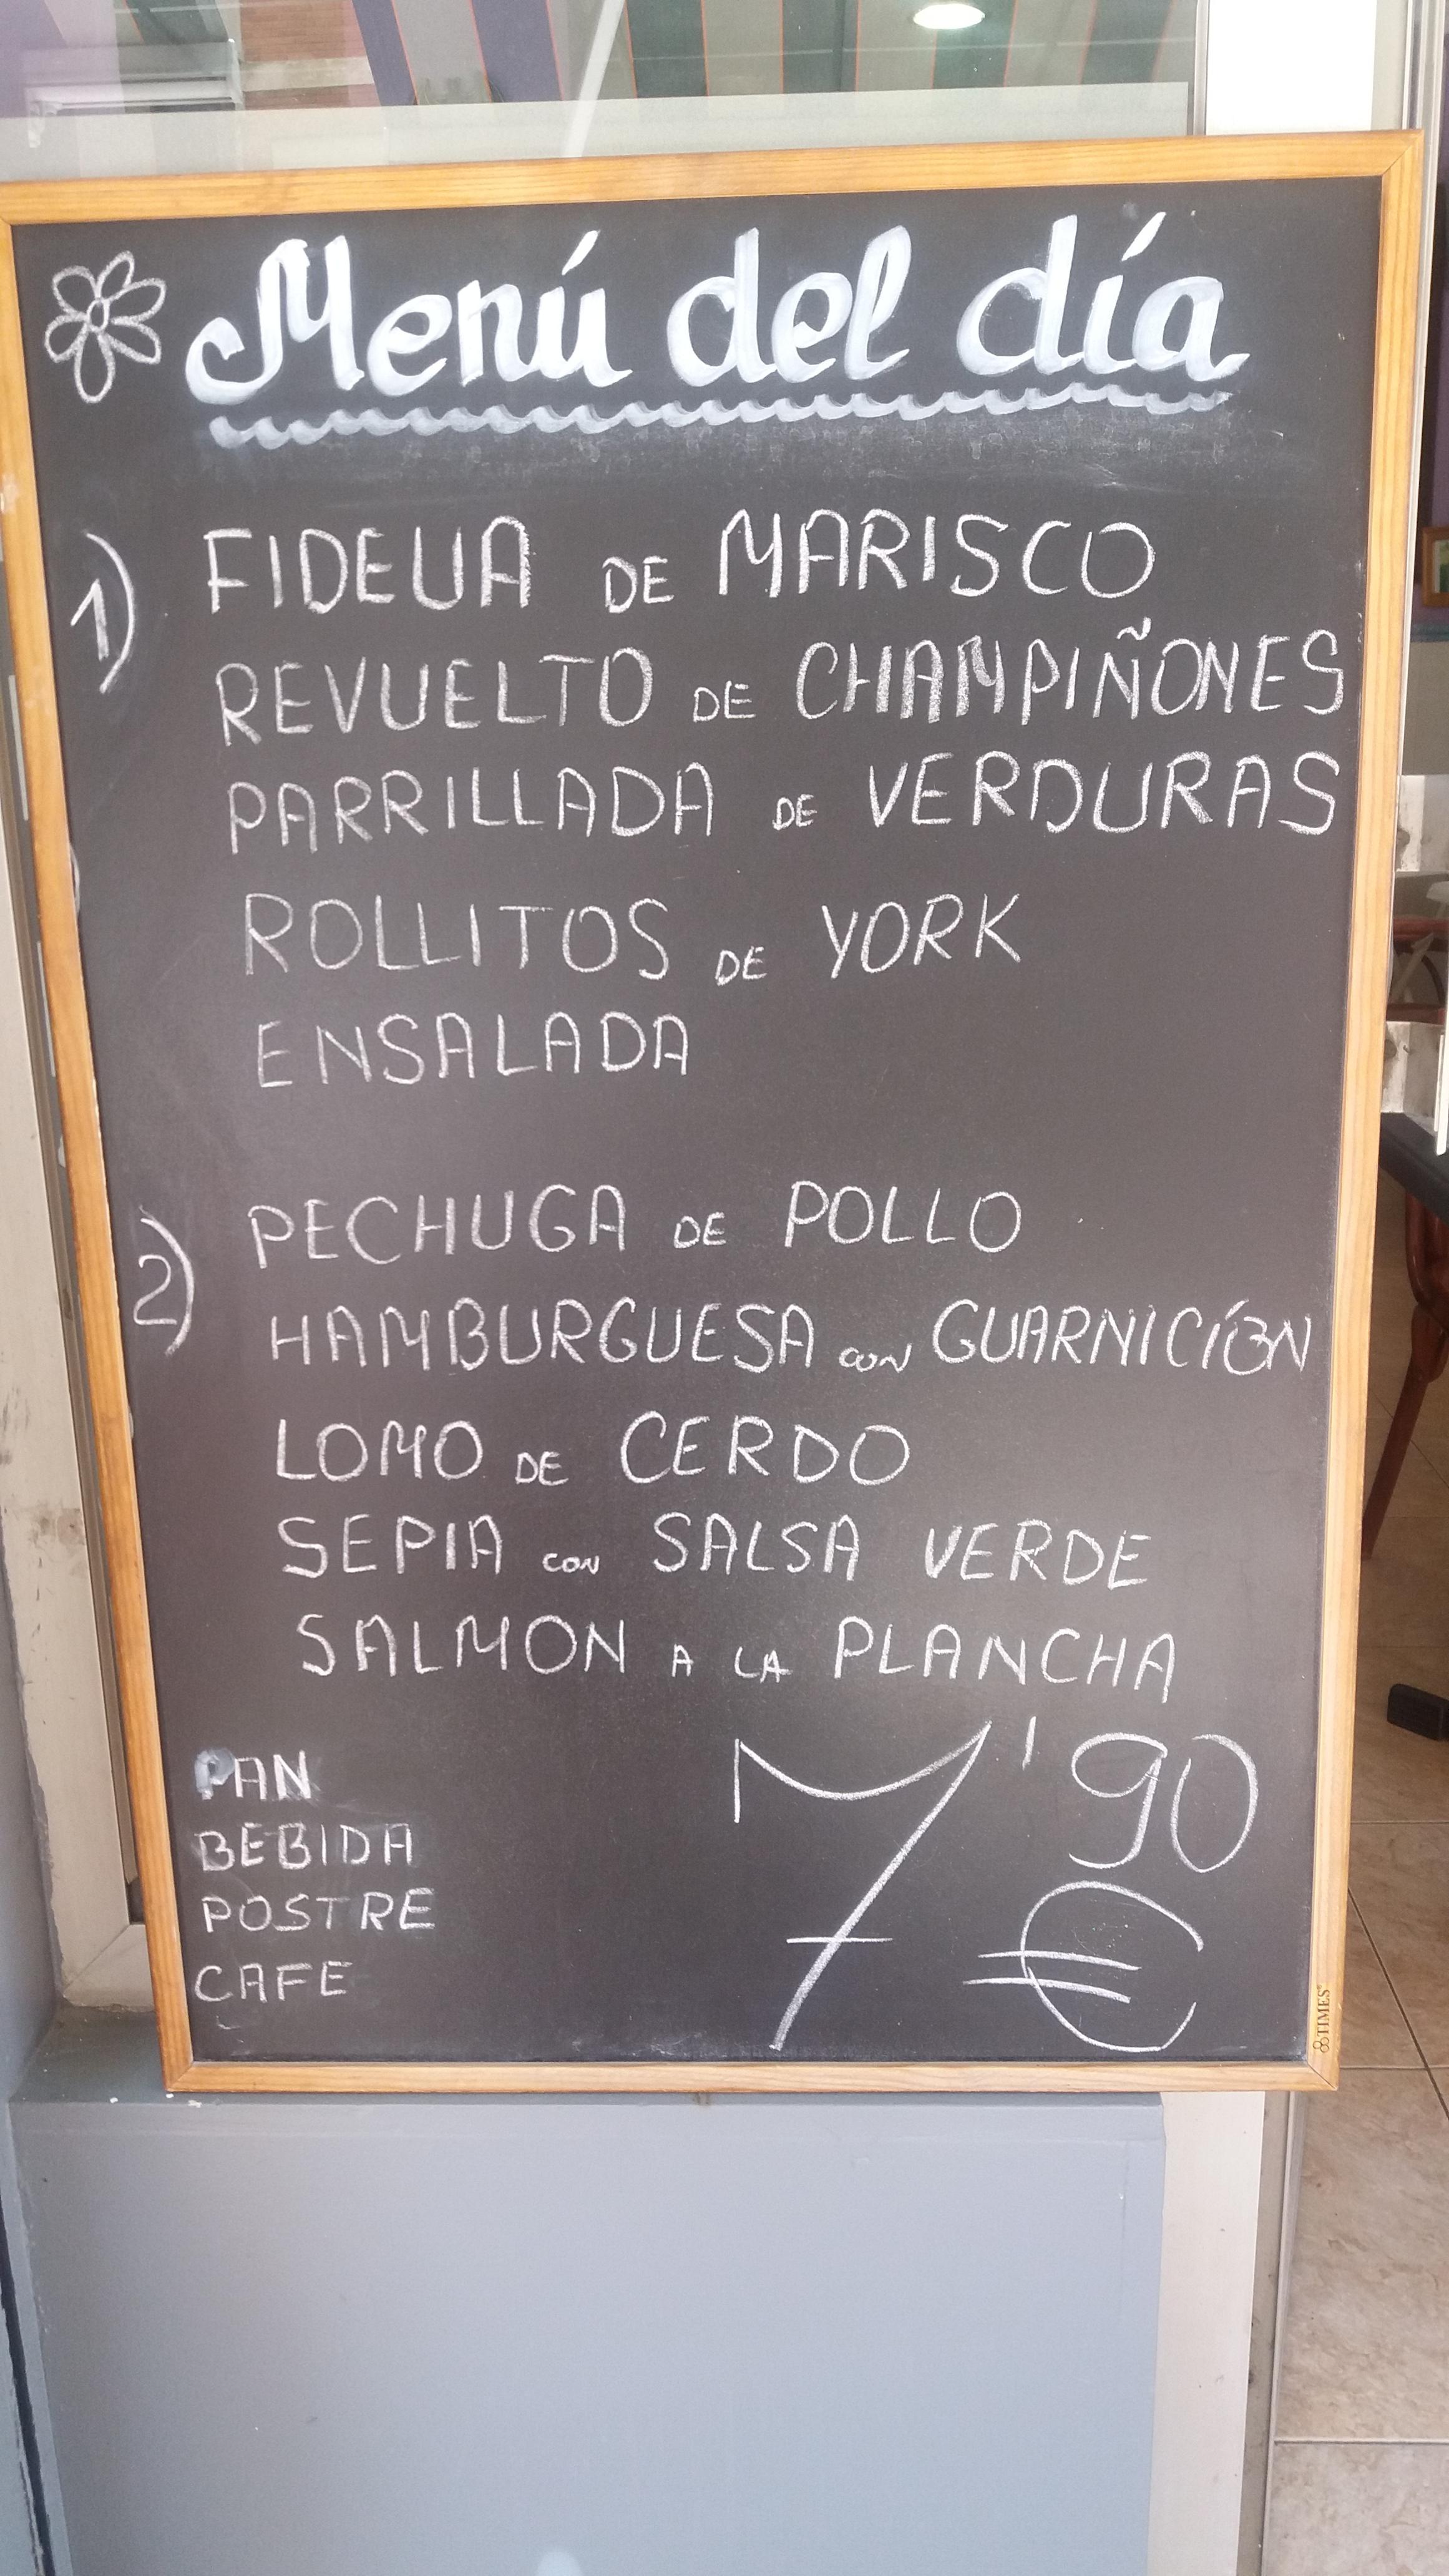 Menú del día
1) FIDEUA DE MARISCO
REVUELTO DE CHAMPIÑONES
PARRILLADA DE VERDURAS
ROLLITOS DE YORK
ENSALADA
2) PECHUGA DE POLLO
HAMBURGUESA CON GUARNICÍON
LOMO DE CERDO
SEPIA CON SALSA VERDE
SALMON A LA PLANCHA
PAN
BEBIDA
POSTRE
CAFE
7'90
€
TIMES